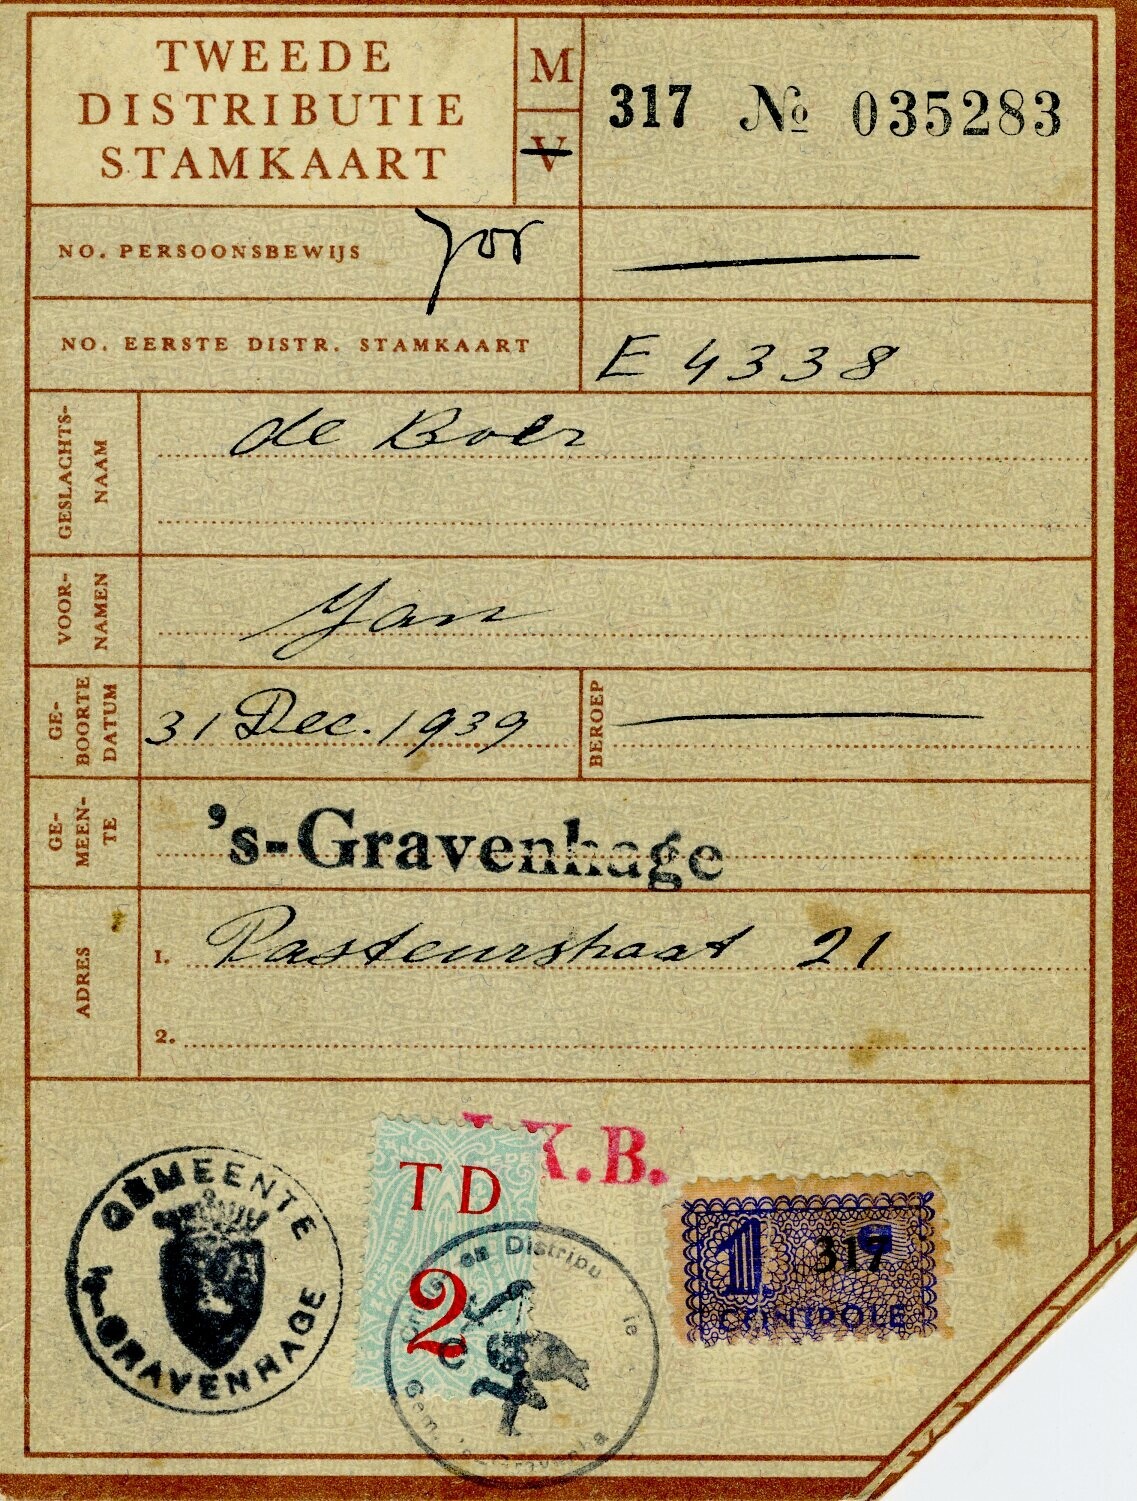 TWEEDE
DISTRIBUTIE
STAMKAART
M
V
317 No 035283
NO. PERSOONSBEWIJS
NO. EERSTE DISTR. STAMKAART E 4338
GESLACHTS-
NAAM
de Boer
VOOR-
NAMEN
Jan
GE-
BOORTE
DATUM
31 Dec. 1939
BEROEP
GE-
MEEN-
TE
's-Gravenhage
ADRES
1. Pasteurstraat 21
2.
K.B.
GEMEENTE
'S-GRAVENHAGE
TD
2
en Distribu ie
Gem. 's-Gravenha
1
317
CONTROLE